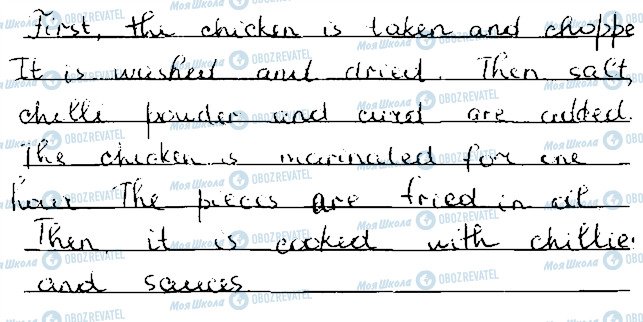 First, the chicken is taken and choppe
It is washed and dried. Then salt,
chilli powder and curd are added.
The chicken is marinated for one
hour. The pieces are fried in oil
Then, it is cooked with chillie
and sauces.
Моя Школа OBOZREVATEL